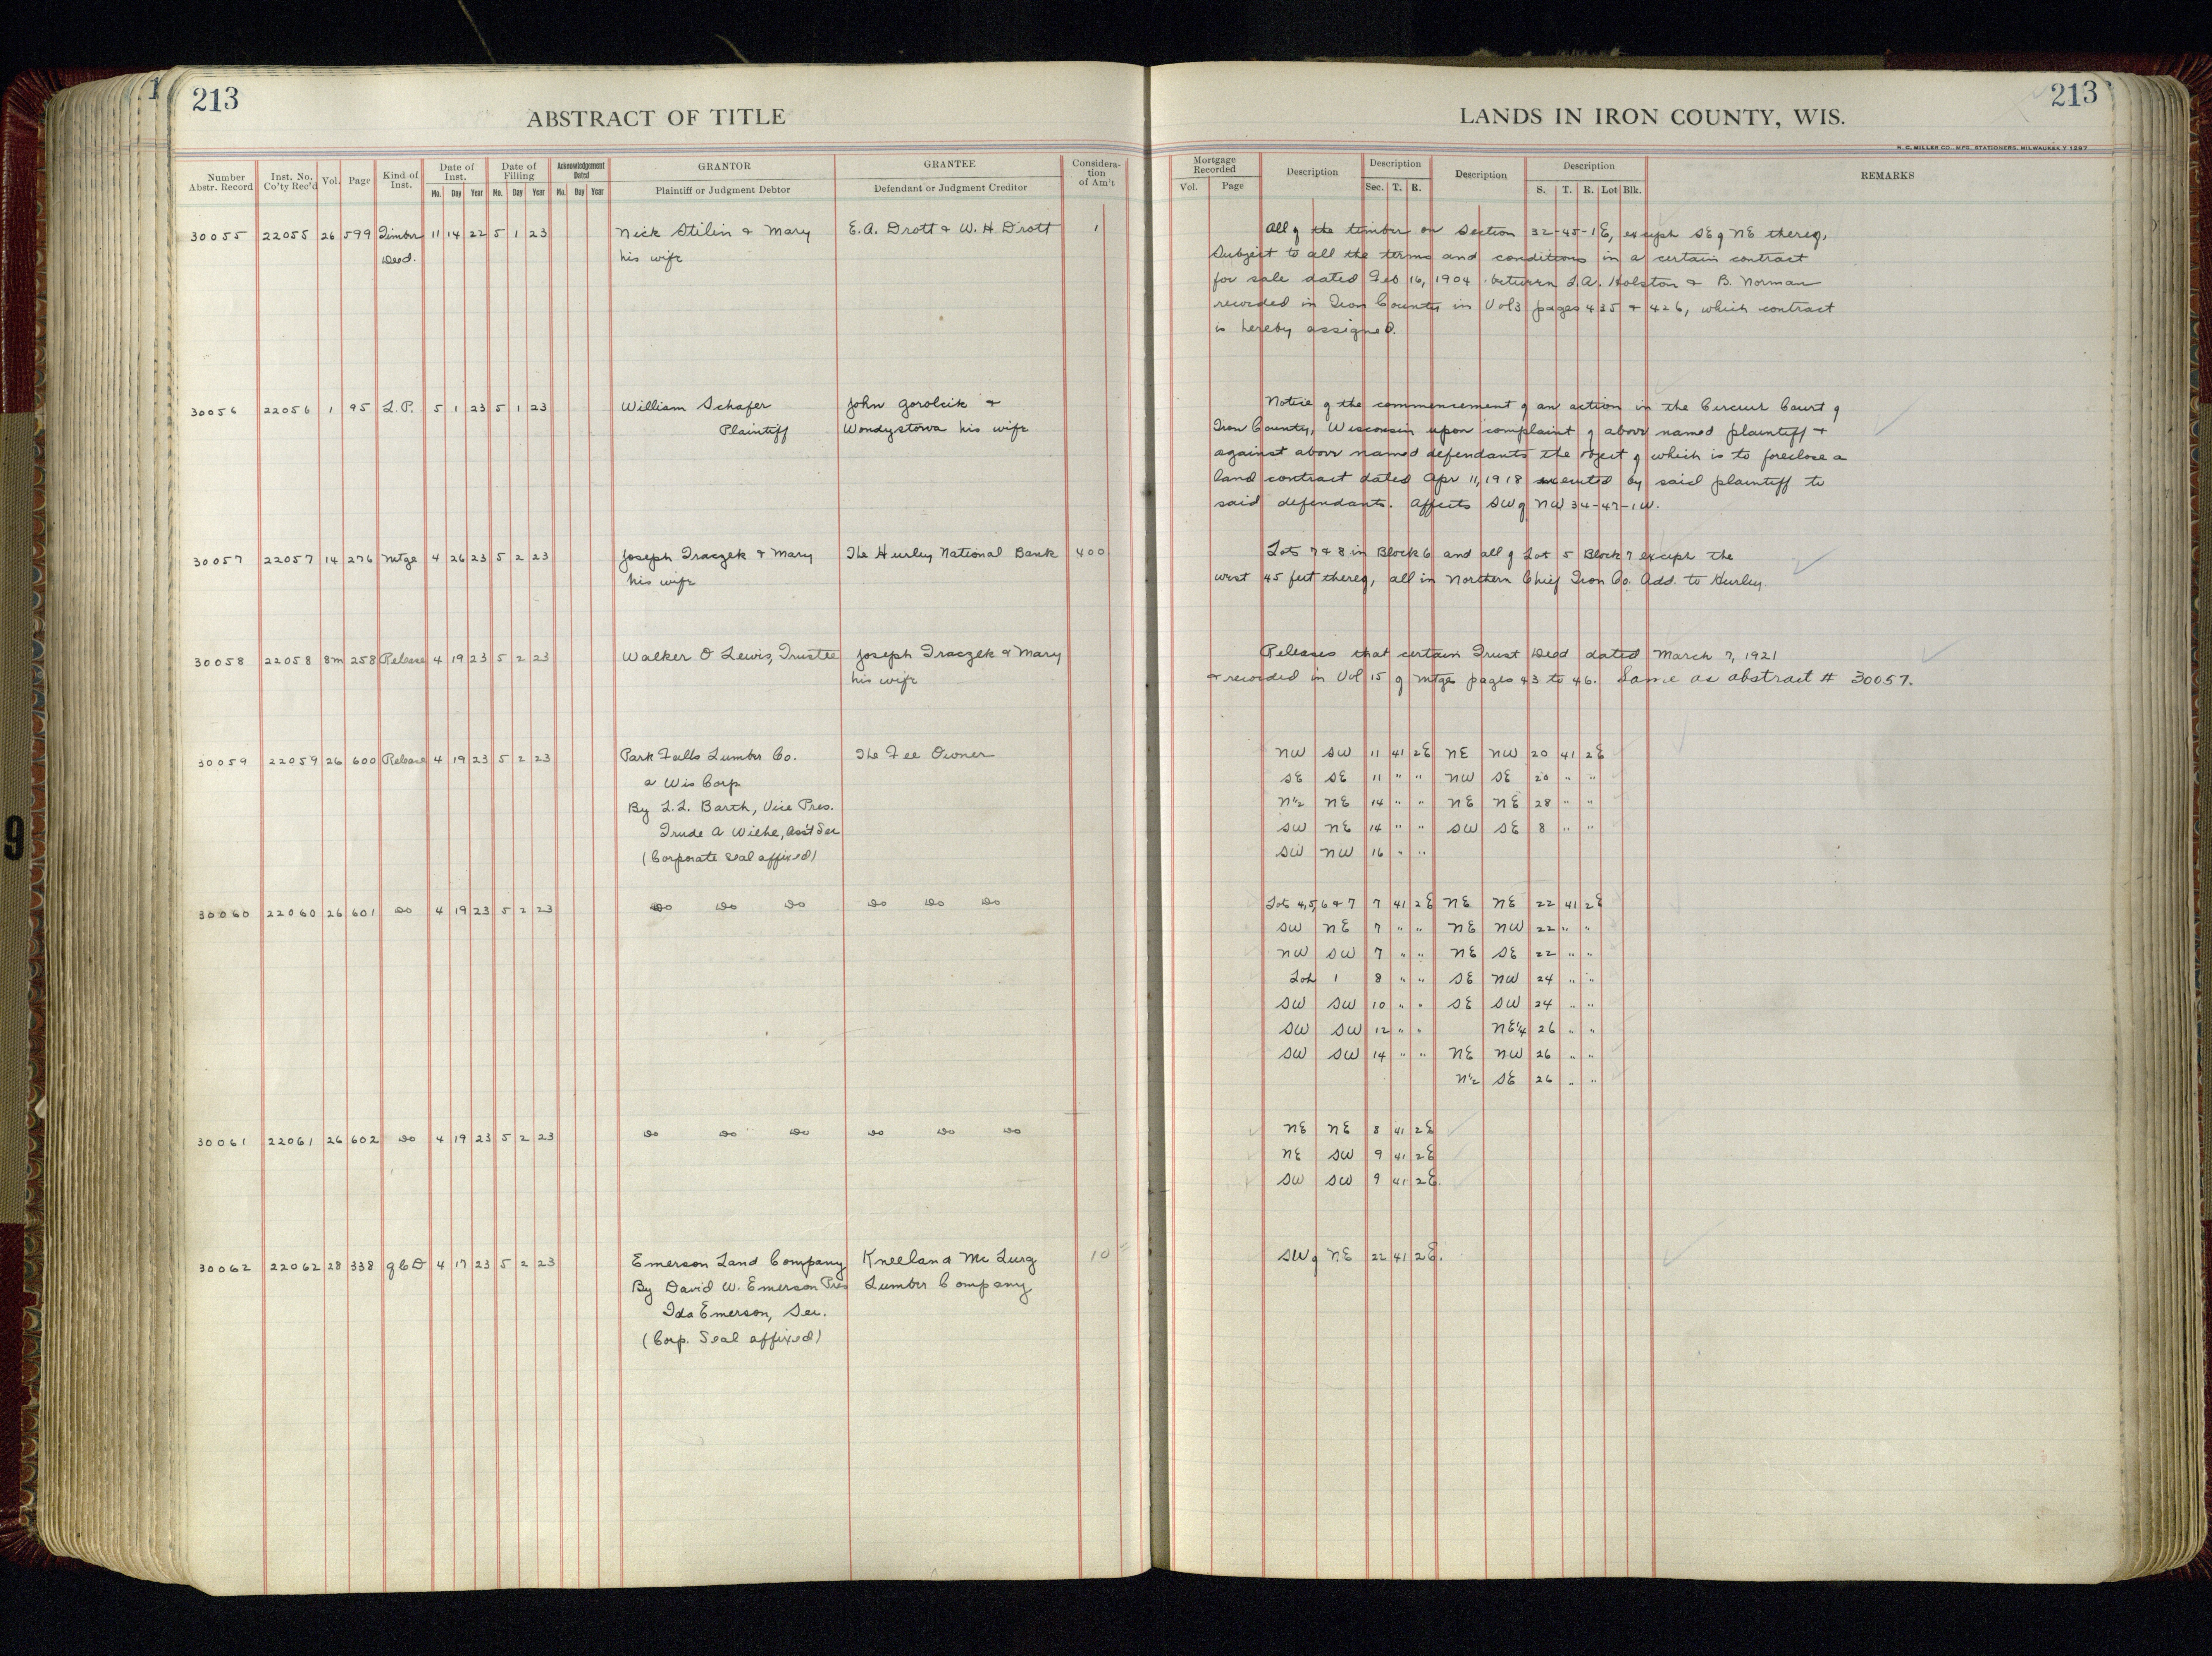 213
ABSTRACT OF TITLE
LANDS IN IRON COUNTY, WIS.
213
H. C. MILLER CO., MFG. STATIONERS, MILWAUKEE
Number Abstr. Record | Inst. No. Co'ty Rec'd | Vol. | Page | Kind of Inst. | Date of Inst. Mo. Day Year | Date of Filling Mo. Day Year | Acknowledgement Dated Mo. Day Year | GRANTOR Plaintiff or Judgment Debtor | GRANTEE Defendant or Judgment Creditor | Considera-tion of Am't
Mortgage Recorded Vol. Page | Description | Description Sec. T. R. | Description | Description S. T. R. Lot Blk. | REMARKS
30055 22055 26 599 Timber 11 14 22 5 1 23 Nick Stilin & Mary E.A. Drott & W.H Drott 1 All of the timber on Section 32-45-1E, except SE of NE thereof,
Deed. his wife Subject to all the terms and conditions in a certain contract
for sale dated Feb 16, 1904 between L.A. Holston & B. Norman
recorded in Iron County in Vol 3 pages 435 & 426, which contract
is hereby assigned.
30056 22056 1 95 L.P. 5 1 23 5 1 23 William Schafer John Gorolcik & Notice of the commencement of an action in the Circuit Court of
Plaintiff Wondystowa his wife Iron County, Wisconsin upon complaint of above named plaintiff &
against above named defendants the object of which is to foreclose a
land contract dated Apr 11, 1918 executed by said plaintiff to
said defendants. Affects SW of NW 34-47-1W.
30057 22057 14 276 Mtge 4 26 23 5 2 23 Joseph Traczek & Mary The Hurley National Bank 400 Lots 7 & 8 in Block 6 and all of Lot 5 Block 7 except the
his wife west 45 feet thereof, all in Northern Chief Iron Co. Add. to Hurley.
30058 22058 8m 258 Release 4 19 23 5 2 23 Walker O Lewis, Trustee Joseph Traczek & Mary Releases that certain Trust Deed dated March 7, 1921
his wife & recorded in Vol 15 of Mtgs pages 43 to 46. Same as abstract # 30057.
30059 22059 26 600 Release 4 19 23 5 2 23 Park Falls Lumber Co. The Fee Owner NW SW 11 41 2E NE NW 20 41 2E
a Wis Corp SE SE 11 " " NW SE 20 " "
By L.L. Barth, Vice Pres. N½ NE 14 " " NE NE 28 " "
Trude A Wiehe, Ass't Sec SW NE 14 " " SW SE 8 " "
(Corporate Seal affixed) SW NW 16 " "
30060 22060 26 601 Do 4 19 23 5 2 23 Do Do Do Do Do Do Lots 4,5,6 & 7 7 41 2E NE NE 22 41 2E
SW NE 7 " " NE NW 22 " "
NW SW 7 " " NE SE 22 " "
Lot 1 8 " " SE NW 24 " "
SW SW 10 " " SE SW 24 " "
SW SW 12 " " NE¼ 26 " "
SW SW 14 " " NE NW 26 " "
N½ SE 26 " "
30061 22061 26 602 Do 4 19 23 5 2 23 Do Do Do Do Do Do NE NE 8 41 2E
NE SW 9 41 2E
SW SW 9 41 2E.
30062 22062 28 338 QCD 4 17 23 5 2 23 Emerson Land Company Kneeland Mc Lurg 10 SW of NE 22 41 2E.
By David W. Emerson Pres Lumber Company
Ida Emerson, Sec.
(Corp. Seal affixed)
9